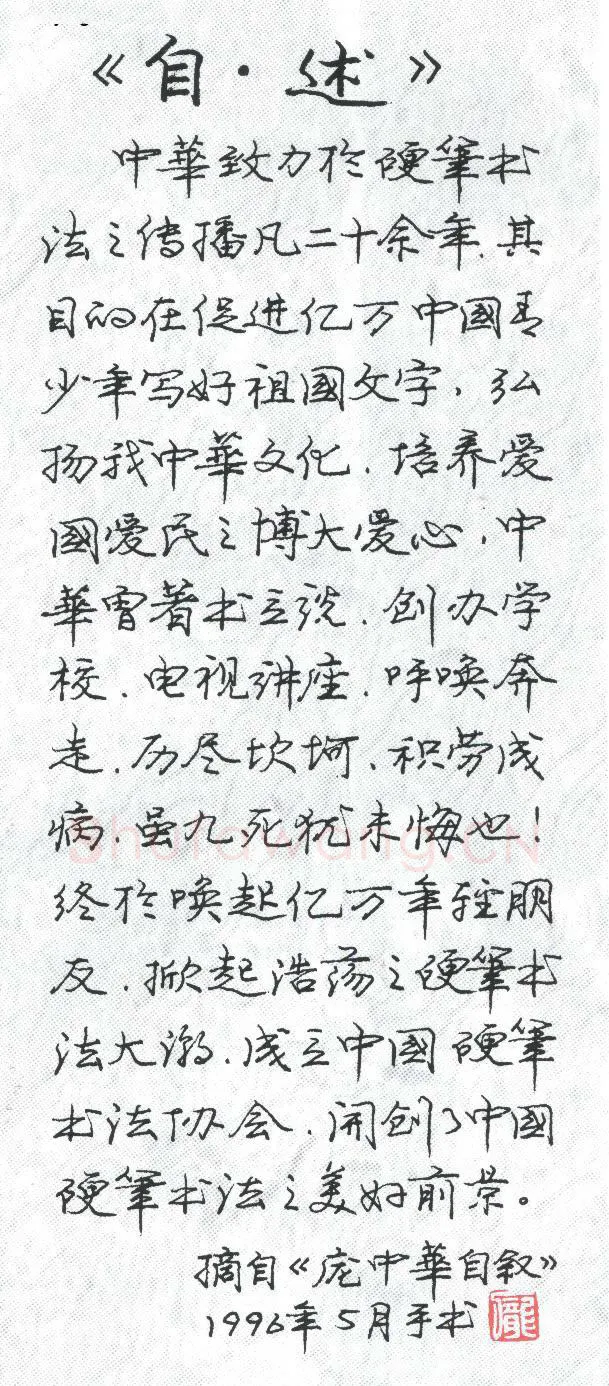 《自·述》
中華致力於硬筆书
法之传播凡二十余年.其
目的在促进亿万中國青
少年写好祖國文字,弘
扬我中華文化.培养爱
國爱民之博大爱心,中
華曾著书立说.创办学
校.电视讲座.呼唤奔
走.历尽坎坷.积劳成
病.虽九死犹未悔也!
终於唤起亿万年轻朋
友.掀起浩荡之硬筆书
法大潮.成立中國硬筆
书法协会.开创了中國
硬筆书法之美好前景。
摘自《庞中華自叙》
1996年5月手书
龐
Shufawang.CN